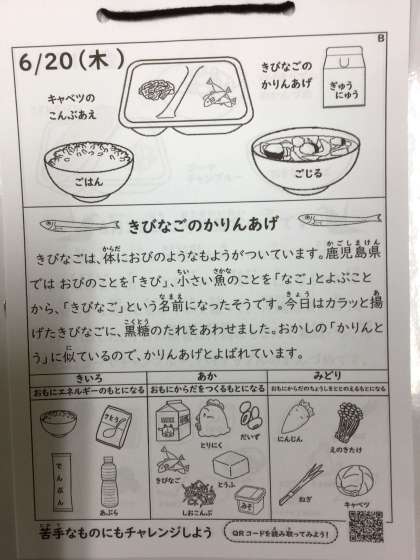 B
6/20(木)
キャベツの
こんぶあえ
きびなごの
かりんあげ
ぎゅう
にゅう
ごはん
ごじる
きびなごのかりんあげ
かごしまけん
きびなごは、体におびのようなもようがついています。鹿児島県
からだ
では おびのことを「きび」、小さい魚のことを「なご」とよぶこと
ちい さかな
から、「きびなご」という名前になったそうです。今日はカラッと揚
なまえ きょう あ
げたきびなごに、黒糖のたれをあわせました。おかしの「かりんと
こくとう
う」に似ているので、かりんあげとよばれています。
に
きいろ
おもにエネルギーのもとになる
さとう
でんぷん
あぶら
あか
おもにからだをつくるもとになる
とりにく
だいず
きびなご
とうふ
しおこんぶ
みそ
みどり
おもにからだのちょうしをととのえるもとになる
にんじん
えのきたけ
ねぎ
キャベツ
にがて
苦手なものにもチャレンジしよう
QRコードを読み取ってみよう!